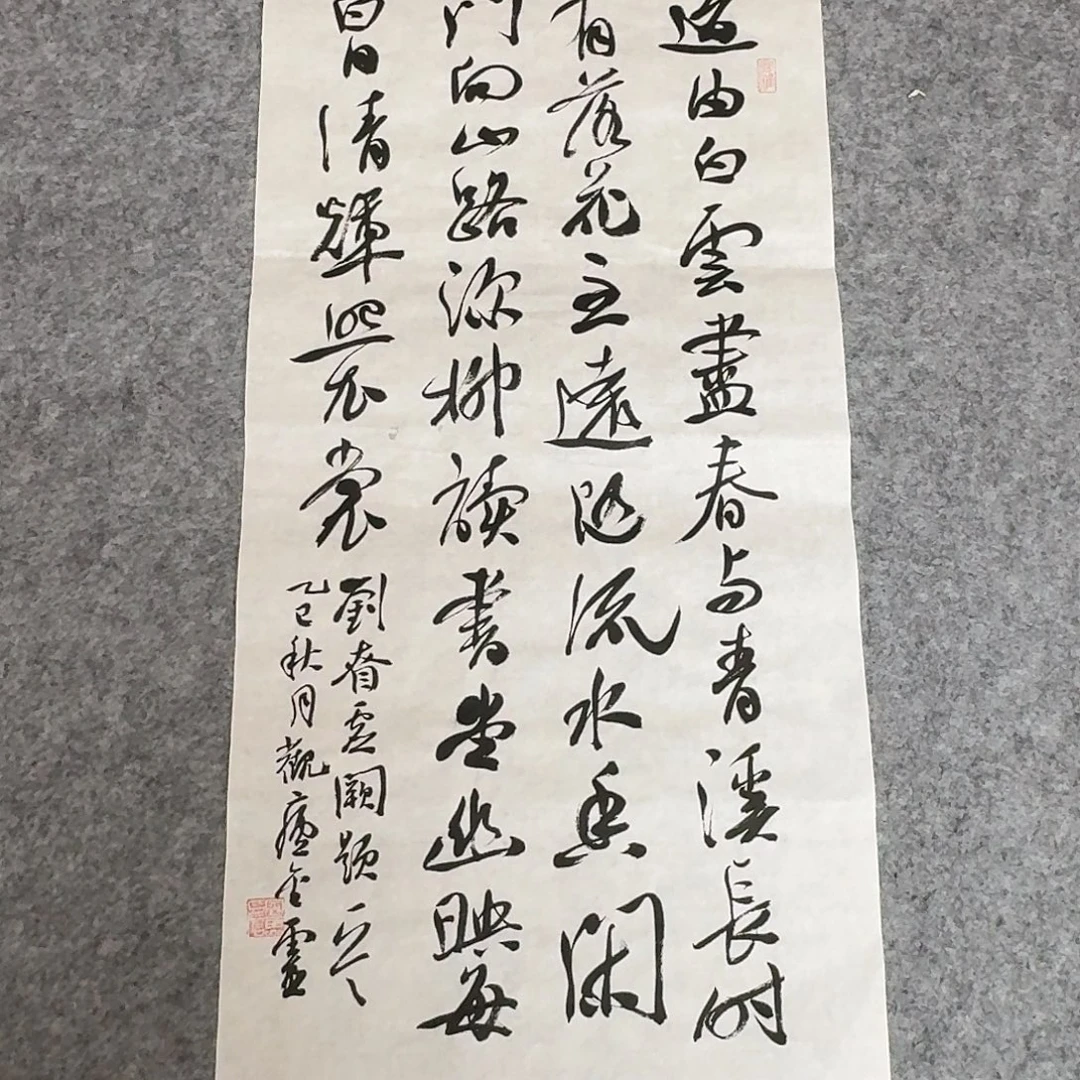 道由白雲盡春与青溪長时
有落花至遠随流水香闲
門向山路深柳讀書堂幽映每
白日清輝照衣裳
劉眘虚闕題
乙巳秋月觀